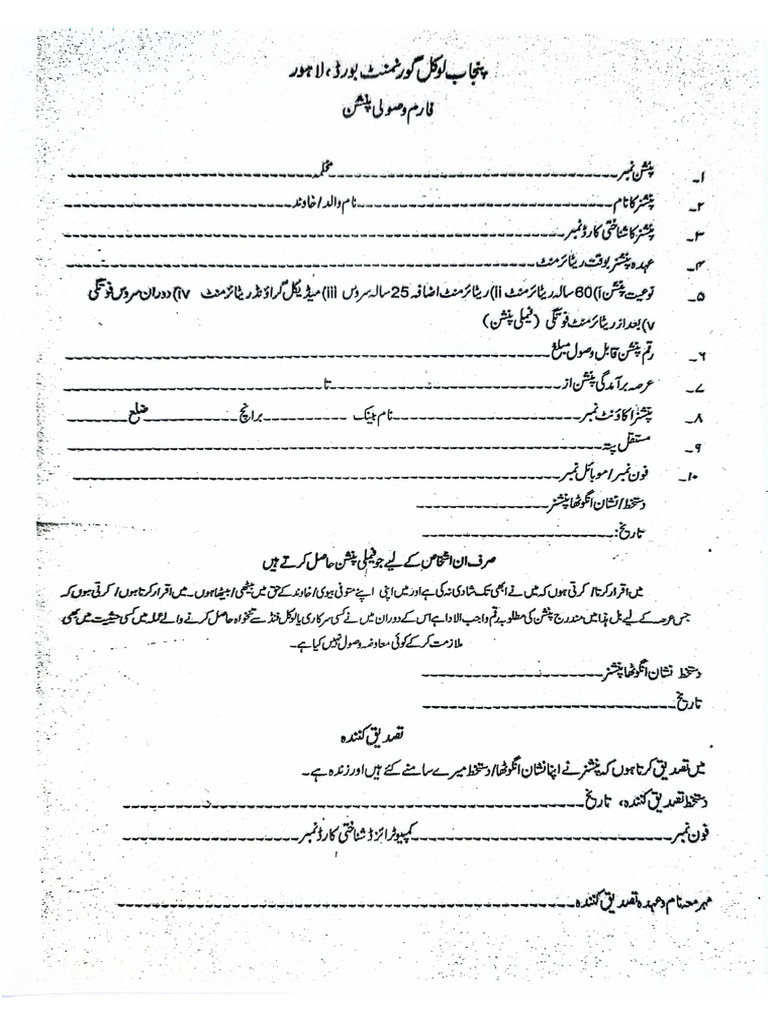 پنجاب لوکل گورنمنٹ بورڈ، لاہور
فارم وصولی پنشن
۱۔ پنشن نمبر ------------ محکمہ ------------
۲۔ پنشنر کا نام ------------ نام والد/خاوند ------------
۳۔ پنشنر کا شناختی کارڈ نمبر ------------
۴۔ عہدہ پنشنر بوقت ریٹائرمنٹ ------------
۵۔ نوعیت پنشن i) 60 سالہ ریٹائرمنٹ ii) ریٹائرمنٹ اضافہ 25 سالہ سروس iii) میڈیکل گراؤنڈ ریٹائرمنٹ iv) دوران سروس فوتگی
v) بعد از ریٹائرمنٹ فوتگی (فیملی پنشن)
۶۔ رقم پنشن قابل وصول مبلغ ------------
۷۔ عرصہ برآمدگی پنشن از ------------ تا ------------
۸۔ پنشنر اکاؤنٹ نمبر ------------ نام بینک ------------ برانچ ------------ ضلع ------------
۹۔ مستقل پتہ ------------
۱۰۔ فون نمبر/موبائل نمبر ------------
دستخط/نشان انگوٹھا پنشنر ------------
تاریخ: ------------
صرف ان اشخاص کے لیے جو فیملی پنشن حاصل کرتے ہیں
میں اقرار کرتا/کرتی ہوں کہ میں نے ابھی تک شادی نہ کی ہے اور میں اپنی اپنے متوفی بیوی/خاوند کے حق میں بیٹھی/بیٹھا ہوں۔ میں اقرار کرتا ہوں/کرتی ہوں کہ
جس عرصہ کے لیے بل ہذا میں مندرج پنشن کی مطلوبہ رقم واجب الادا ہے اس کے دوران میں نے کسی سرکاری یا لوکل فنڈ سے تنخواہ حاصل کرنے والے عملہ میں کسی حیثیت میں بھی
ملازمت کر کے کوئی معاوضہ وصول نہیں کیا ہے۔
دستخط نشان انگوٹھا پنشنر ------------
تاریخ ------------
تصدیق کنندہ
میں تصدیق کرتا ہوں کہ پنشنر نے اپنا نشان انگوٹھا/دستخط میرے سامنے کئے ہیں اور زندہ ہے۔
دستخط تصدیق کنندہ، تاریخ ------------
فون نمبر ------------ کمپیوٹرائزڈ شناختی کارڈ نمبر ------------
مہر معہ نام و عہدہ تصدیق کنندہ ------------